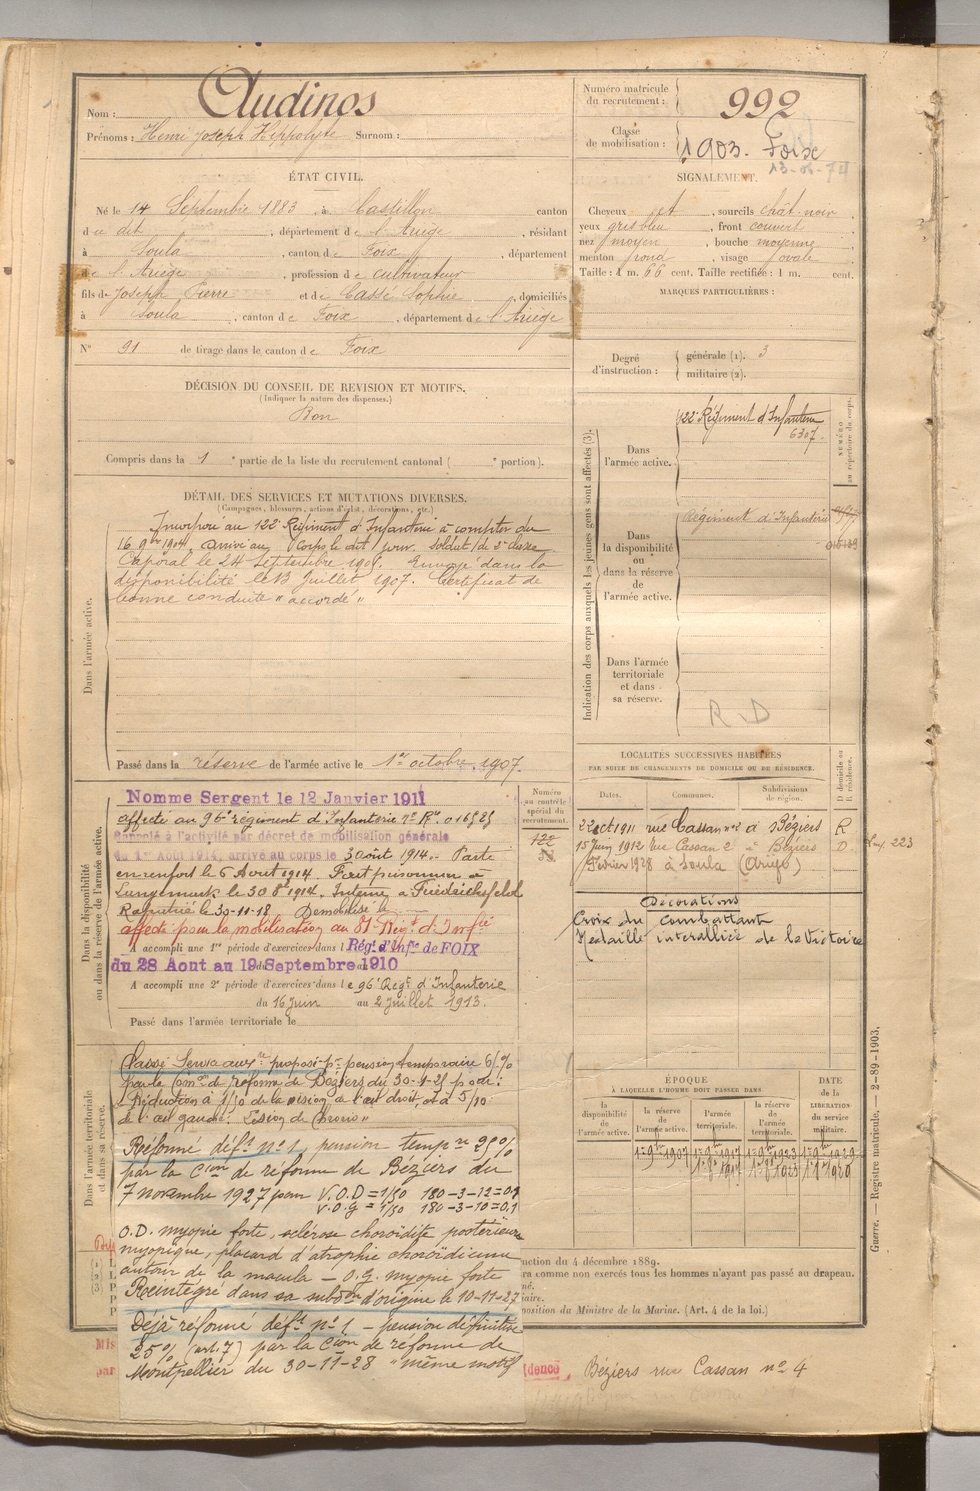 Nom : Audinos
Prénoms : Henri Joseph Hippolyte Surnom :
Numéro matricule du recrutement : 992
Classe de mobilisation : 1903. Foix
ÉTAT CIVIL.
Né le 14 Septembre 1883, à Castillon canton
du dit, département de l'Ariège, résidant
à Soula, canton de Foix, département
de l'Ariège, profession de cultivateur
fils de Joseph Pierre et de Cassé Sophie, domiciliés
à Soula, canton de Foix, département de l'Ariège
N° 91 de tirage dans le canton de Foix
SIGNALEMENT.
Cheveux et, sourcils chât. noir,
yeux gris bleu, front couvert
nez moyen, bouche moyenne
menton rond, visage ovale
Taille : 1 m. 66 cent. Taille rectifiée : 1 m. cent.
MARQUES PARTICULIÈRES :
Degré d'instruction : générale (1). 3
militaire (2).
DÉCISION DU CONSEIL DE REVISION ET MOTIFS.
(Indiquer la nature des dispenses.)
Bon
Compris dans la 1e partie de la liste du recrutement cantonal ( e portion).
DÉTAIL DES SERVICES ET MUTATIONS DIVERSES.
(Campagnes, blessures, actions d'éclat, décorations, etc.)
Dans l'armée active.
Incorporé au 122e Régiment d'Infanterie à compter du
16 9bre 1904. Arrivé au Corps le dit jour. Soldat de 2e classe
Caporal le 24 Septembre 1905. Envoyé dans la
disponibilité le 13 Juillet 1907. Certificat de
bonne conduite " accordé "
Passé dans la réserve de l'armée active le 1er octobre 1907.
Indication des corps auxquels les jeunes gens sont affectés (3).
NUMÉRO au répertoire du corps.
Dans l'armée active.
122e Régiment d'Infanterie
6307.
Dans la disponibilité ou dans la réserve de l'armée active.
Régiment d'Infanterie
Dans l'armée territoriale et dans sa réserve.
R. D
Dans la disponibilité ou dans la réserve de l'armée active.
Nomme Sergent le 12 Janvier 1911
affecté au 96e régiment d'Infanterie
Rappelé à l'activité par décret de mobilisation générale
du 1er Aout 1914, arrivé au corps le 3 août 1914. Parti
en renfort le 6 Aout 1914. Fait prisonnier à
Langemark le 30 8bre 1914. Interné à Friedrichsfeld
Rapatrié le 30-11-18 Démobilisé le
affecté pour la mobilisation au 81e Rég. d'Infie
A accompli une 1re période d'exercices dans l Rég. d'Infie de FOIX
du 28 Aout au 19 Septembre 1910
A accompli une 2e période d'exercices dans le 96e Régt d'Infanterie
du 16 juin au 2 juillet 1913.
Passé dans l'armée territoriale le
Numéro au contrôle spécial du recrutement.
122
LOCALITÉS SUCCESSIVES HABITÉES
PAR SUITE DE CHANGEMENTS DE DOMICILE OU DE RÉSIDENCE.
Dates. Communes. Subdivisions de région. D domicile ou R résidence.
22 oct 1911 rue Cassan n° 2 à Béziers R
15 juin 1912 rue Cassan 2 à Béziers D.
Février 1928 à Soula (Ariège)
223
Décorations
Croix du combattant
Médaille interalliée de la Victoire
Dans l'armée territoriale et dans sa réserve.
Passé Serv. aux. re proposé pr pension temporaire 6 %
par la Comon de réforme de Béziers du 30-1-25 pour :
Réduction à 1/50 de la vision de l'œil droit, et à 5/10
de l'œil gauche.
Réformé déft n° 1 pension tempre 25%
par la Cion de réforme de Béziers du
7 novembre 1927 pour V.O.D = 1/50 180-3-12=0.1
V.O.G = 1/50 180-3-10=0.1
O.D. myopie forte, sclérose choroïdite postérieure
myopique, placard d'atrophie choroïdienne
autour de la macula — O.G. myopie forte
Réintégré dans sa subdon d'origine le 10-11-27
Déjà réformé déft n° 1 — pension définitive
25% (art. 7) par la Cion de réforme de
Montpellier du 30-11-28 "même motif"
ÉPOQUE
À LAQUELLE L'HOMME DOIT PASSER DANS
la disponibilité de l'armée active. la réserve de l'armée active. l'armée territoriale. la réserve de l'armée territoriale. DATE de la LIBÉRATION du service militaire.
1er 9bre 1907
uction du 4 décembre 1889.
ra comme non exercés tous les hommes n'ayant pas passé au drapeau.
position du Ministre de la Marine. (Art. 4 de la loi.)
Mis
par
dence Béziers rue Cassan n° 4
Guerre. — Registre matricule. — 2-89-1903.